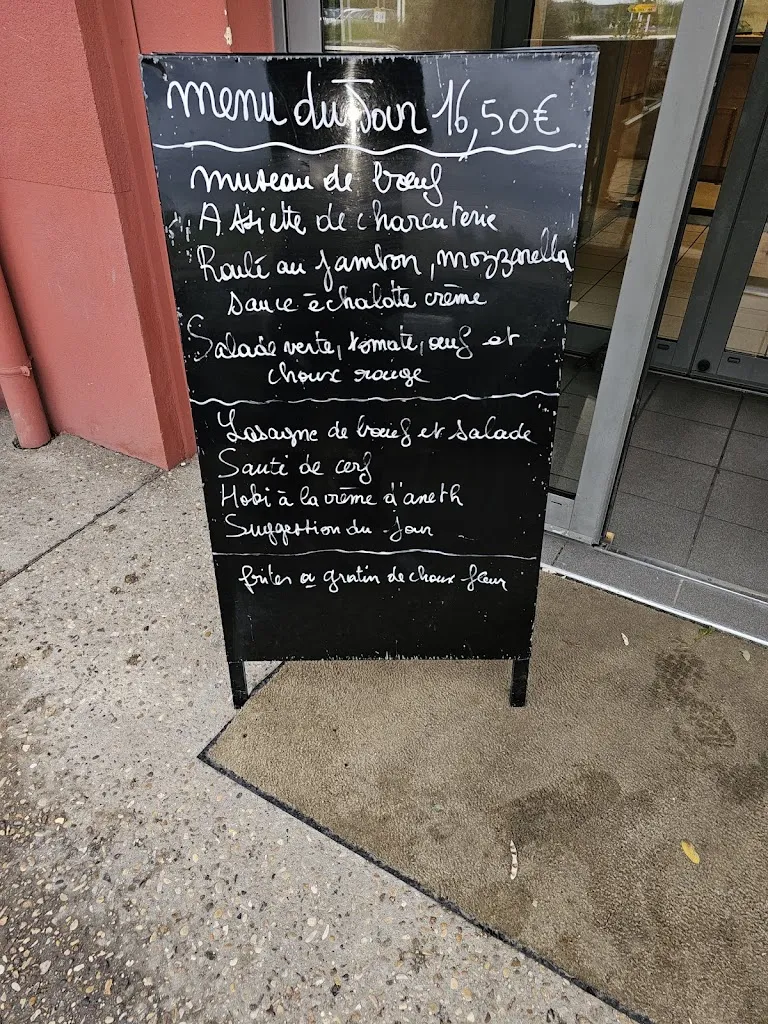 Menu du Jour 16,50€
museau de bœuf
Assiette de charcuterie
Roulé au jambon, mozzarella
sauce échalote crème
Salade verte, tomate, œuf et
choux rouge
Lasagne de bœuf et salade
Sauté de cerf
Hoki à la crème d'aneth
Suggestion du Jour
frites gratin de choux fleur